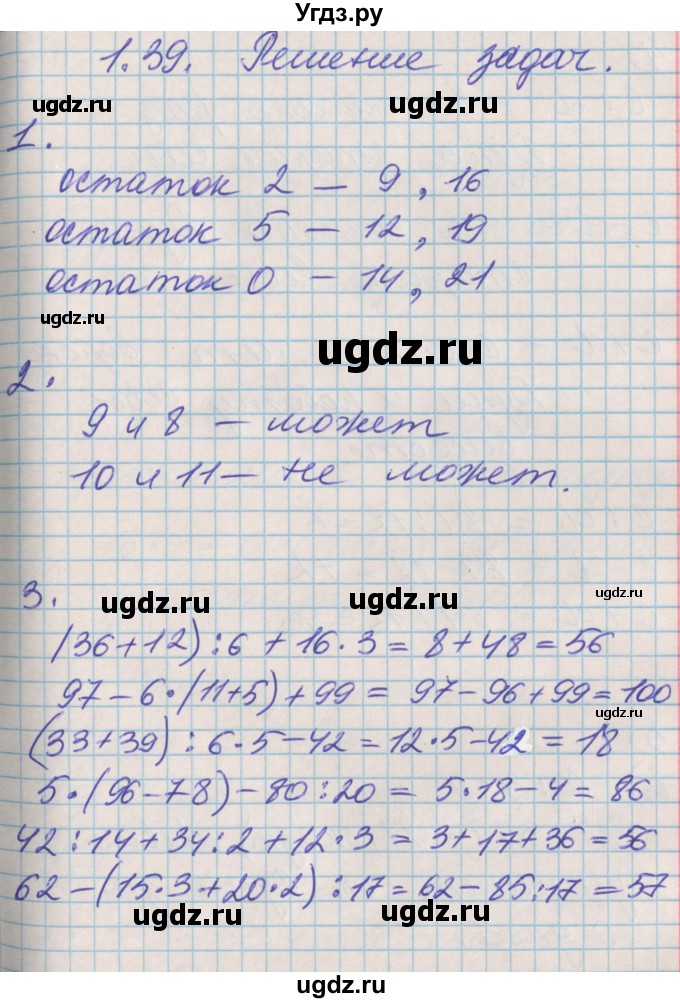 Угдз.ру
1.39. Решение задач.
ugdz.ru ugdz.ru
1.
остаток 2 — 9, 16
остаток 5 — 12, 19
остаток 0 — 14, 21
ugdz.ru
ugdz.ru
2.
9 и 8 — может
10 и 11 — не может.
ugdz.ru
3.
ugdz.ru ugdz.ru
(36+12):6+16·3=8+48=56
97-6·(11+5)+99=97-96+99=100
ugdz.ru
(33+39):6·5-42=12·5-42=18
5·(96-78)-80:20=5·18-4=86
42:14+34:2+12·3=3+17+36=56
62-(15·3+20·2):17=62-85:17=57
ugdz.ru ugdz.ru
ugdz.ru